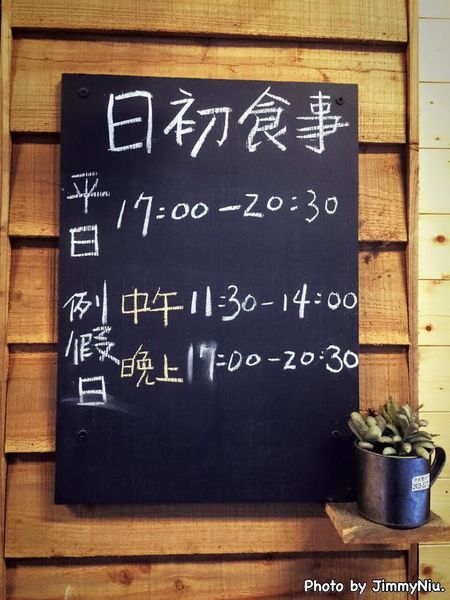 日初食事
平日 17:00-20:30
例假日 中午 11:30-14:00
晚上 17:00-20:30
Photo by JimmyNiu.